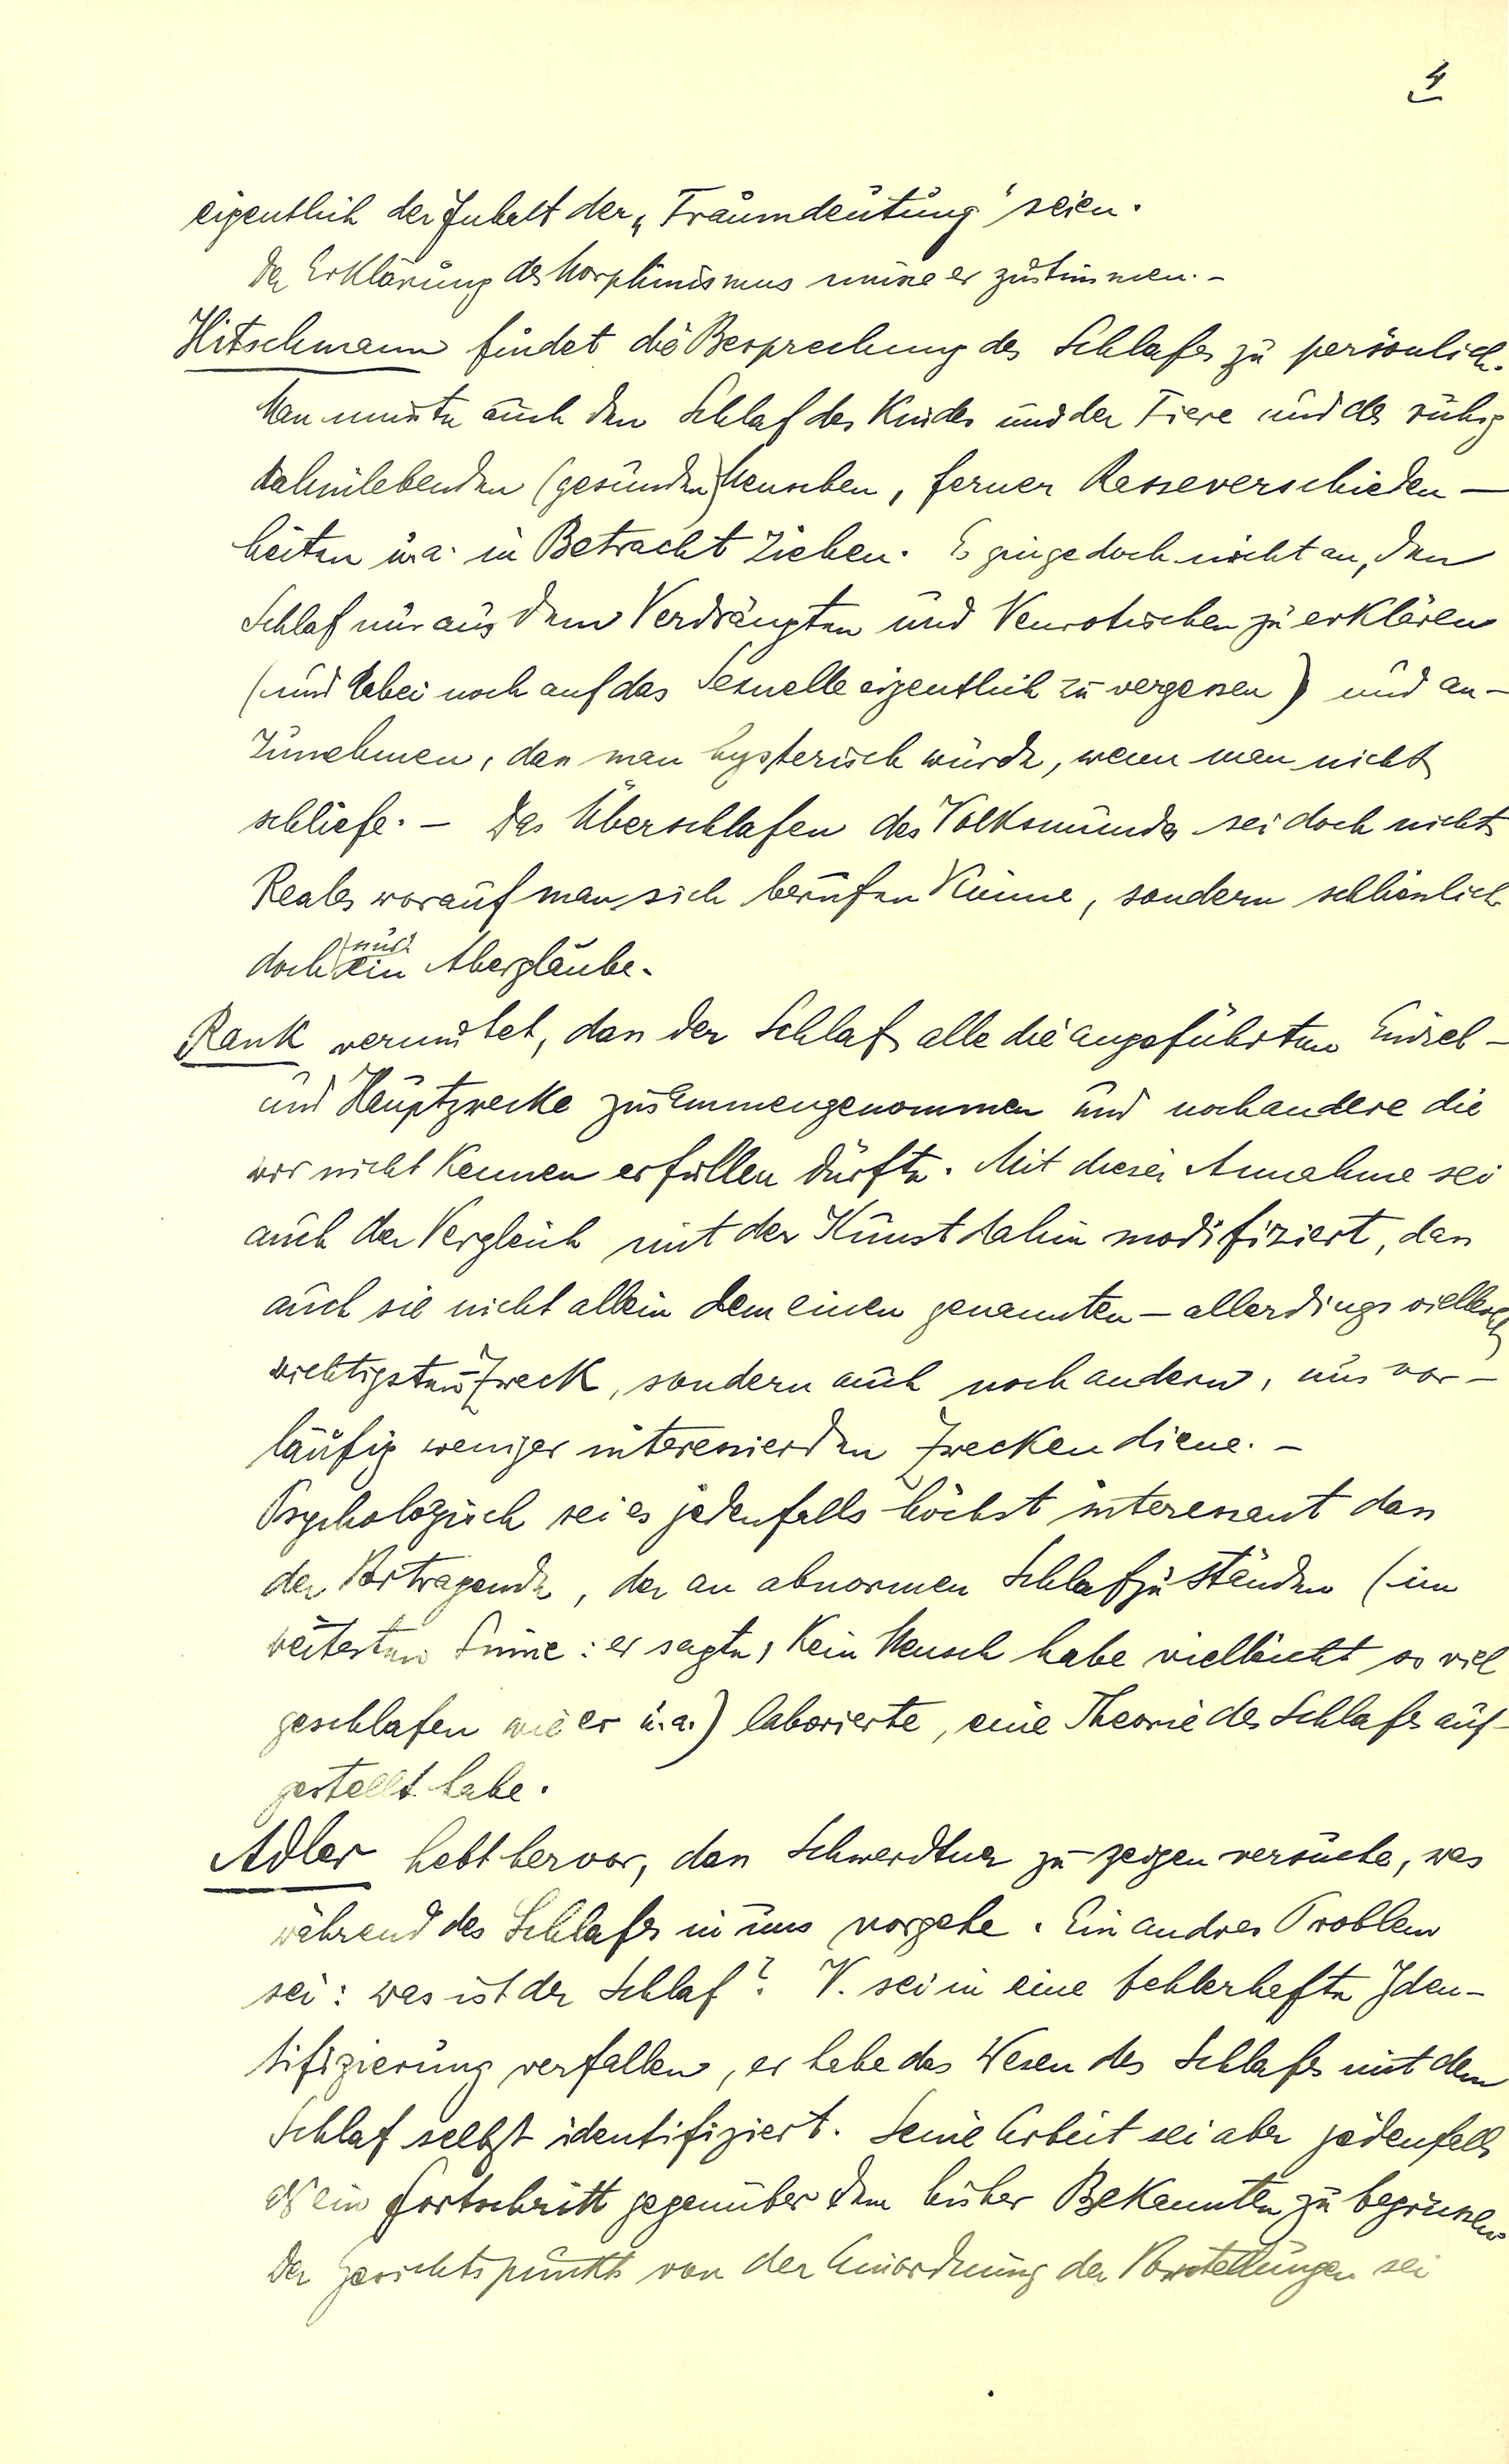 4
eigentlich der Inhalt der „Traumdeutung" seien.
Der Erklärung des Morphinismus müsse er zustimmen. –
Hitschmann findet die Besprechung des Schlafes zu persönlich.
Man müsste auch den Schlaf des Kindes und der Tiere und des ruhig
dahinlebenden (gesunden) Menschen, ferner Rasseverschieden–
heiten u. a. in Betracht ziehen. Es ginge doch nicht an, den
Schlaf nur aus dem Verdrängten und Neurotischen zu erklären
(und dabei noch auf das Sexuelle eigentlich zu vergessen) und an–
zunehmen, dass man hysterisch würde, wenn man nicht
schliefe. – Das Überschlafen des Volksmundes sei doch nichts
Reales worauf man sich berufen könne, sondern schliesslich
doch nur ein Aberglaube.
Rank vermutet, dass der Schlaf alle die angeführten Einzel–
und Hauptzwecke zusammengenommen und noch andere die
wir nicht kennen erfüllen dürfte. Mit dieser Annahme sei
auch der Vergleich mit der Kunst dahin modifiziert, dass
auch sie nicht allein dem einen genannten – allerdings vielleicht
wichtigsten – Zweck, sondern auch noch andern, uns vor–
läufig weniger interessierenden Zwecken diene. –
Psychologisch sei es jedenfalls höchst interessant dass
der Vortragende, der an abnormen Schlafzuständen (im
weitesten Sinne: er sagte, kein Mensch habe vielleicht so viel
geschlafen wie er u. a.) laborierte, eine Theorie des Schlafes auf–
gestellt habe.
Adler hebt hervor, dass Schwerdtner zu zeigen versuche, was
während des Schlafes in uns vorgehe. Ein andres Problem
sei: was ist der Schlaf? V. sei in eine fehlerhafte Iden–
tifizierung verfallen, er habe das Wesen des Schlafes mit dem
Schlaf selbst identifiziert. Seine Arbeit sei aber jedenfalls
als ein Fortschritt gegenüber dem bisher Bekannten zu begrüssen
Der Gesichtspunkt von der Einordnung der Vorstellungen sei